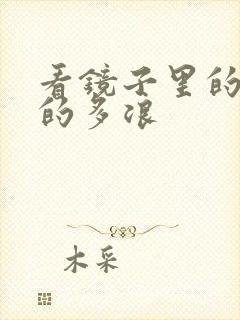 看镜子里的
的多浪
木采